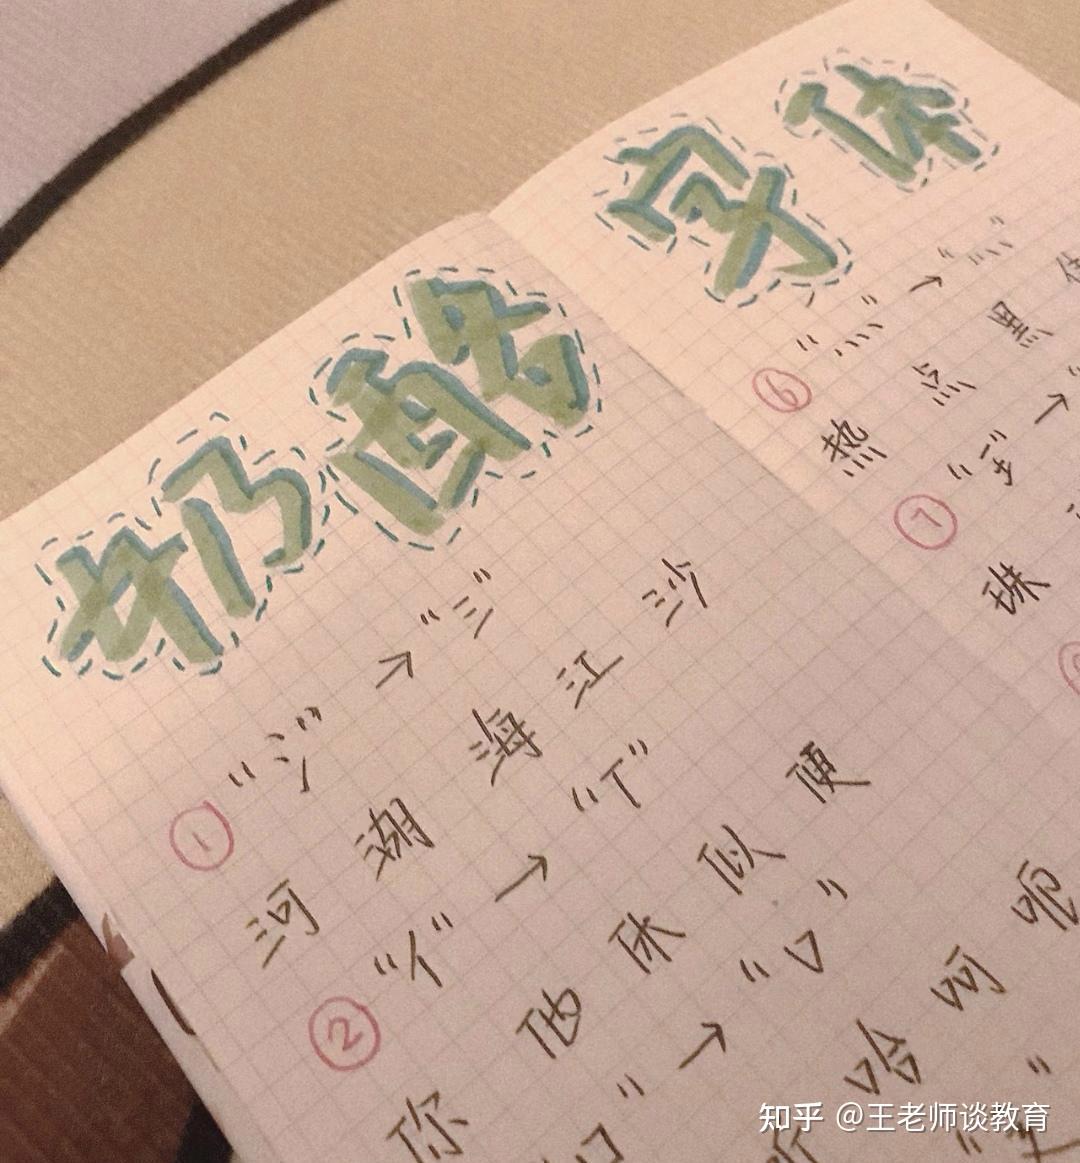 奶酪字体
① “氵” → “三”
河 湖 海 江 沙
② “亻” → “丅”
你 他 休 似 便
” → “ロ”
听 哈 呵 呃
⑥ “灬” → “灬”
热 点 黑
⑦ “王” → “
珠
知乎 @王老师谈教育